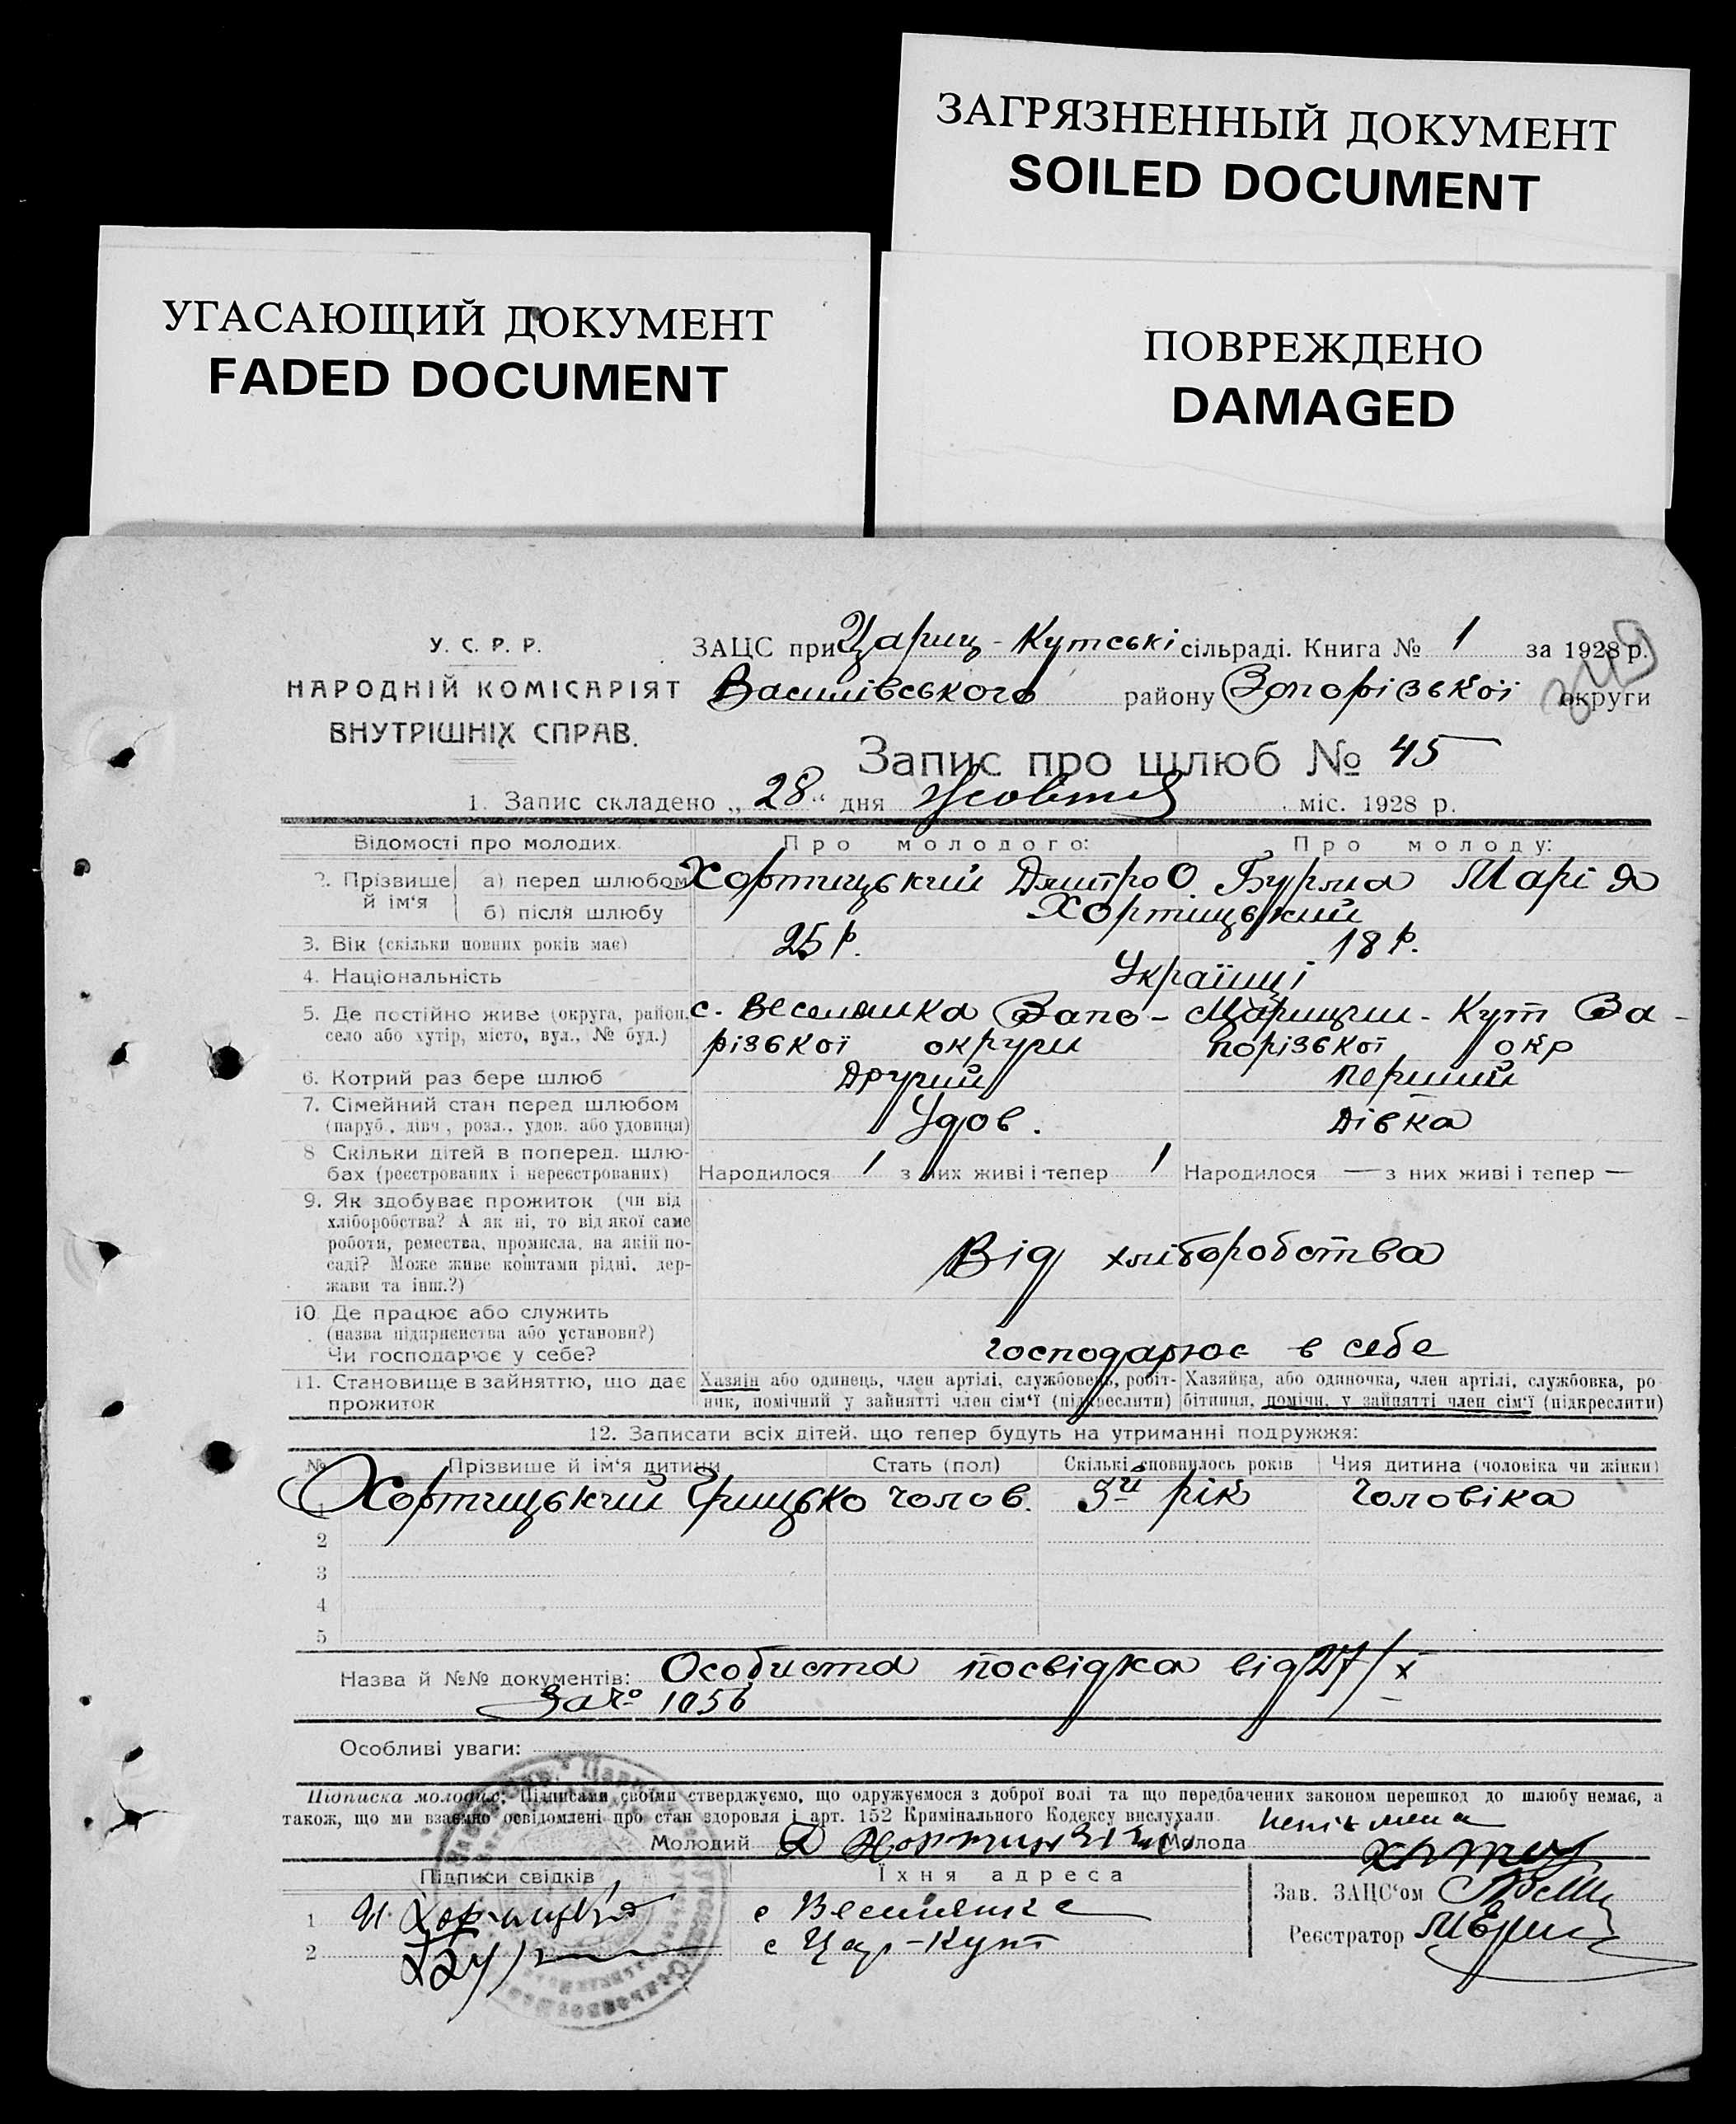 ЗАГРЯЗНЕННЫЙ ДОКУМЕНТ
SOILED DOCUMENT
УГАСАЮЩИЙ ДОКУМЕНТ
FADED DOCUMENT
ПОВРЕЖДЕНО
DAMAGED
У. С. Р. Р.
НАРОДНІЙ КОМІСАРІЯТ
ВНУТРІШНІХ СПРАВ.
ЗАЦС при Цариц-Кутські сільраді. Книга № 1 за 1928 р.
Василівського району Запорізької округи
Запис про шлюб № 45
1. Запис складено „28“ дня Жовтня міс. 1928 р.
Відомості про молодих. Про молодого: Про молоду:
2. Прізвище й ім'я а) перед шлюбом Хортицький Дмитро О. Бурма Марія
б) після шлюбу Хортіцький
3. Вік (скільки повних років має) 25 р. 18 р.
4. Національність Українці
5. Де постійно живе (округа, район, с. Веселянка Запо- Царицин-Кут За-
село або хутір, місто, вул., № буд.) різької округи порізької окр
6. Котрий раз бере шлюб Другий Перший
7. Сімейний стан перед шлюбом
(паруб., дівч., розл., удов. або удовиця) Удов. Дівка
8 Скільки дітей в поперед. шлю-
бах (реєстрованих і нереєстрованих) Народилося 1 з них живі і тепер 1 Народилося — з них живі і тепер —
9. Як здобуває прожиток (чи від
хліборобства? А як ні, то від якої саме
роботи, ремества, промисла, на якій по-
саді? Може живе коштами рідні, дер-
жави та інш.?)
Від хліборобства
10. Де працює або служить
(назва підприємства або установи?)
Чи господарює у себе?
господарює в себе
11. Становище в зайняттю, що дає Хазяїн або одинець, член артілі, службовець, робіт- Хазяйка, або одиночка, член артілі, службовка, ро
прожиток ник, помічний у зайнятті член сім'ї (підкреслити) бітниця, помічн. у зайнятті член сім'ї (підкреслити)
12. Записати всіх дітей, що тепер будуть на утриманні подружжя:
№ Прізвище й ім'я дитини Стать (пол) Скількі сповнилось років Чия дитина (чоловіка чи жінки)
1 Хортицький Грицько чолов. 3й рік Чоловіка
2
3
4
5
Назва й №№ документів: Особиста посвідка від 27/X
за № 1056
Особливі уваги:
Підписка молодих: Підписами своїми стверджуємо, що одружуємося з доброї волі та що передбачених законом перешкод до шлюбу немає, а
також, що ми взаємно освідомлені про стан здоровля і арт. 152 Кримінального Кодексу вислухали.
Молодий Молода
Підписи свідків Їхня адреса
1 с Веселянка
2 с Цар-Кут
Зав. ЗАЦС'ом
Реєстратор